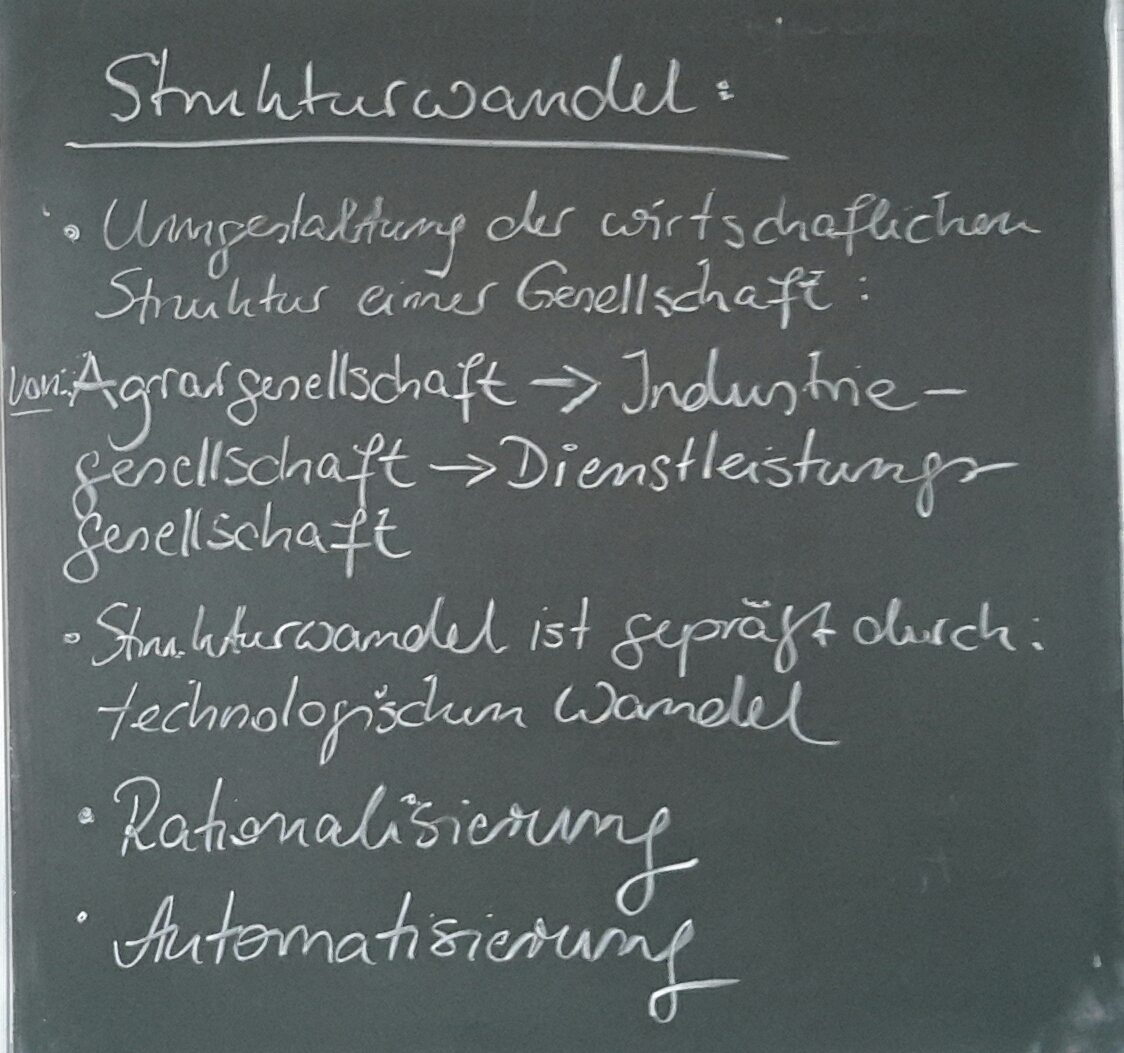 Strukturwandel:
• Umgestaltung der wirtschaflichen
Struktur einer Gesellschaft:
von: Agrargesellschaft → Industrie-
gesellschaft → Dienstleistungs-
gesellschaft
• Strukturwandel ist geprägt durch:
technologischen Wandel
• Rationalisierung
• Automatisierung